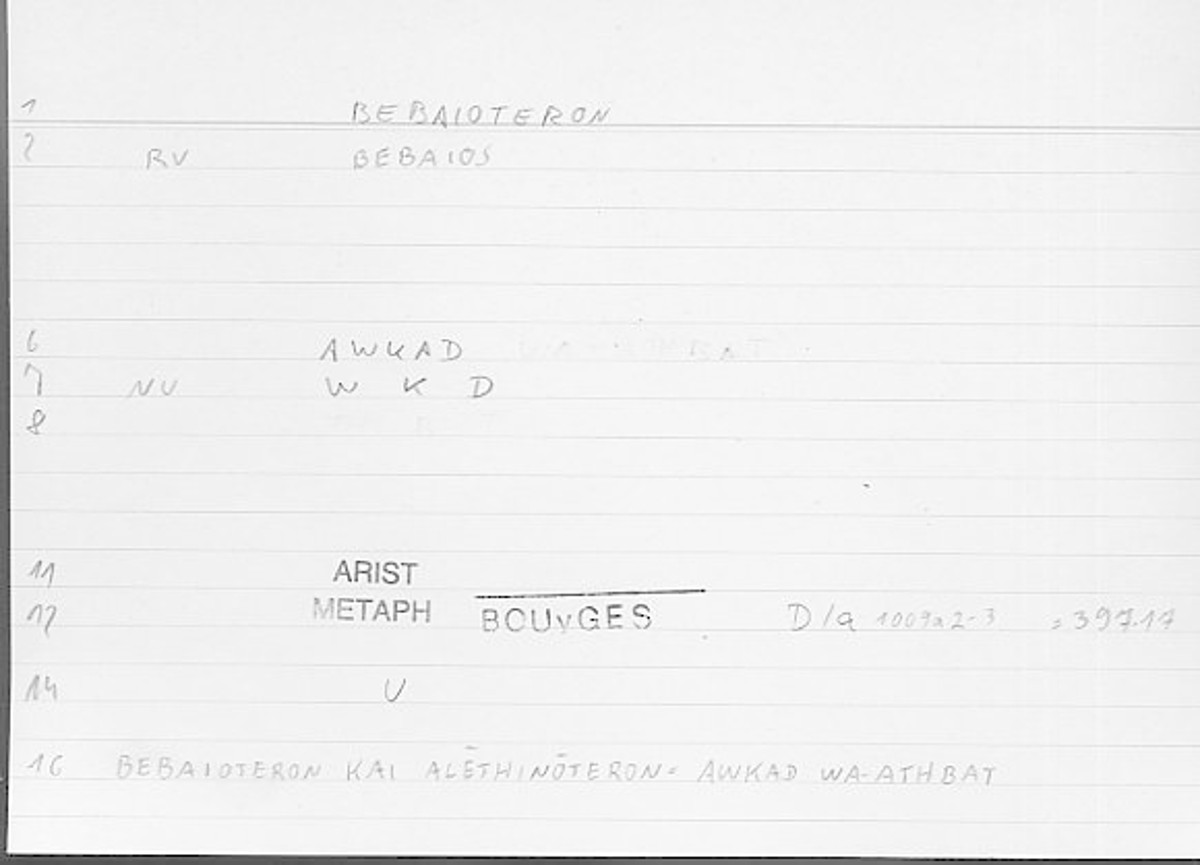 1 BEBAIOTERON
2 RV BEBAIOS
6 AWKAD
7 NV W K D
8
11 ARIST
12 METAPH BOUyGES D/a 1009a2-3 = 397.17
14 V
16 BEBAIOTERON KAI ALĒTHINŌTERON = AWKAD WA-ATHBAT